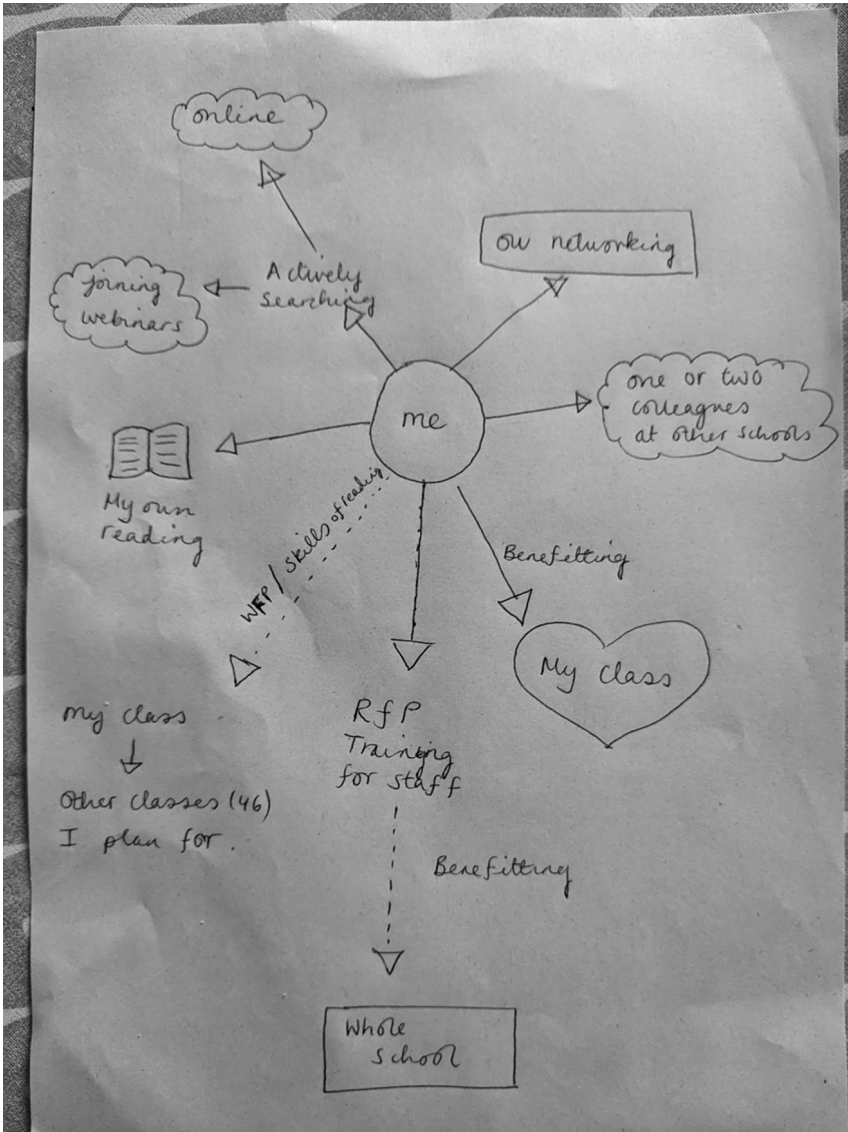 online
OU networking
Actively
searching
joining
webinars
one or two
colleagues
at other schools
me
My own
reading
/ skills of reading
Benefitting
My class
my class
Other classes (46)
I plan for.
RfP
Training
for staff
Benefitting
Whole
school